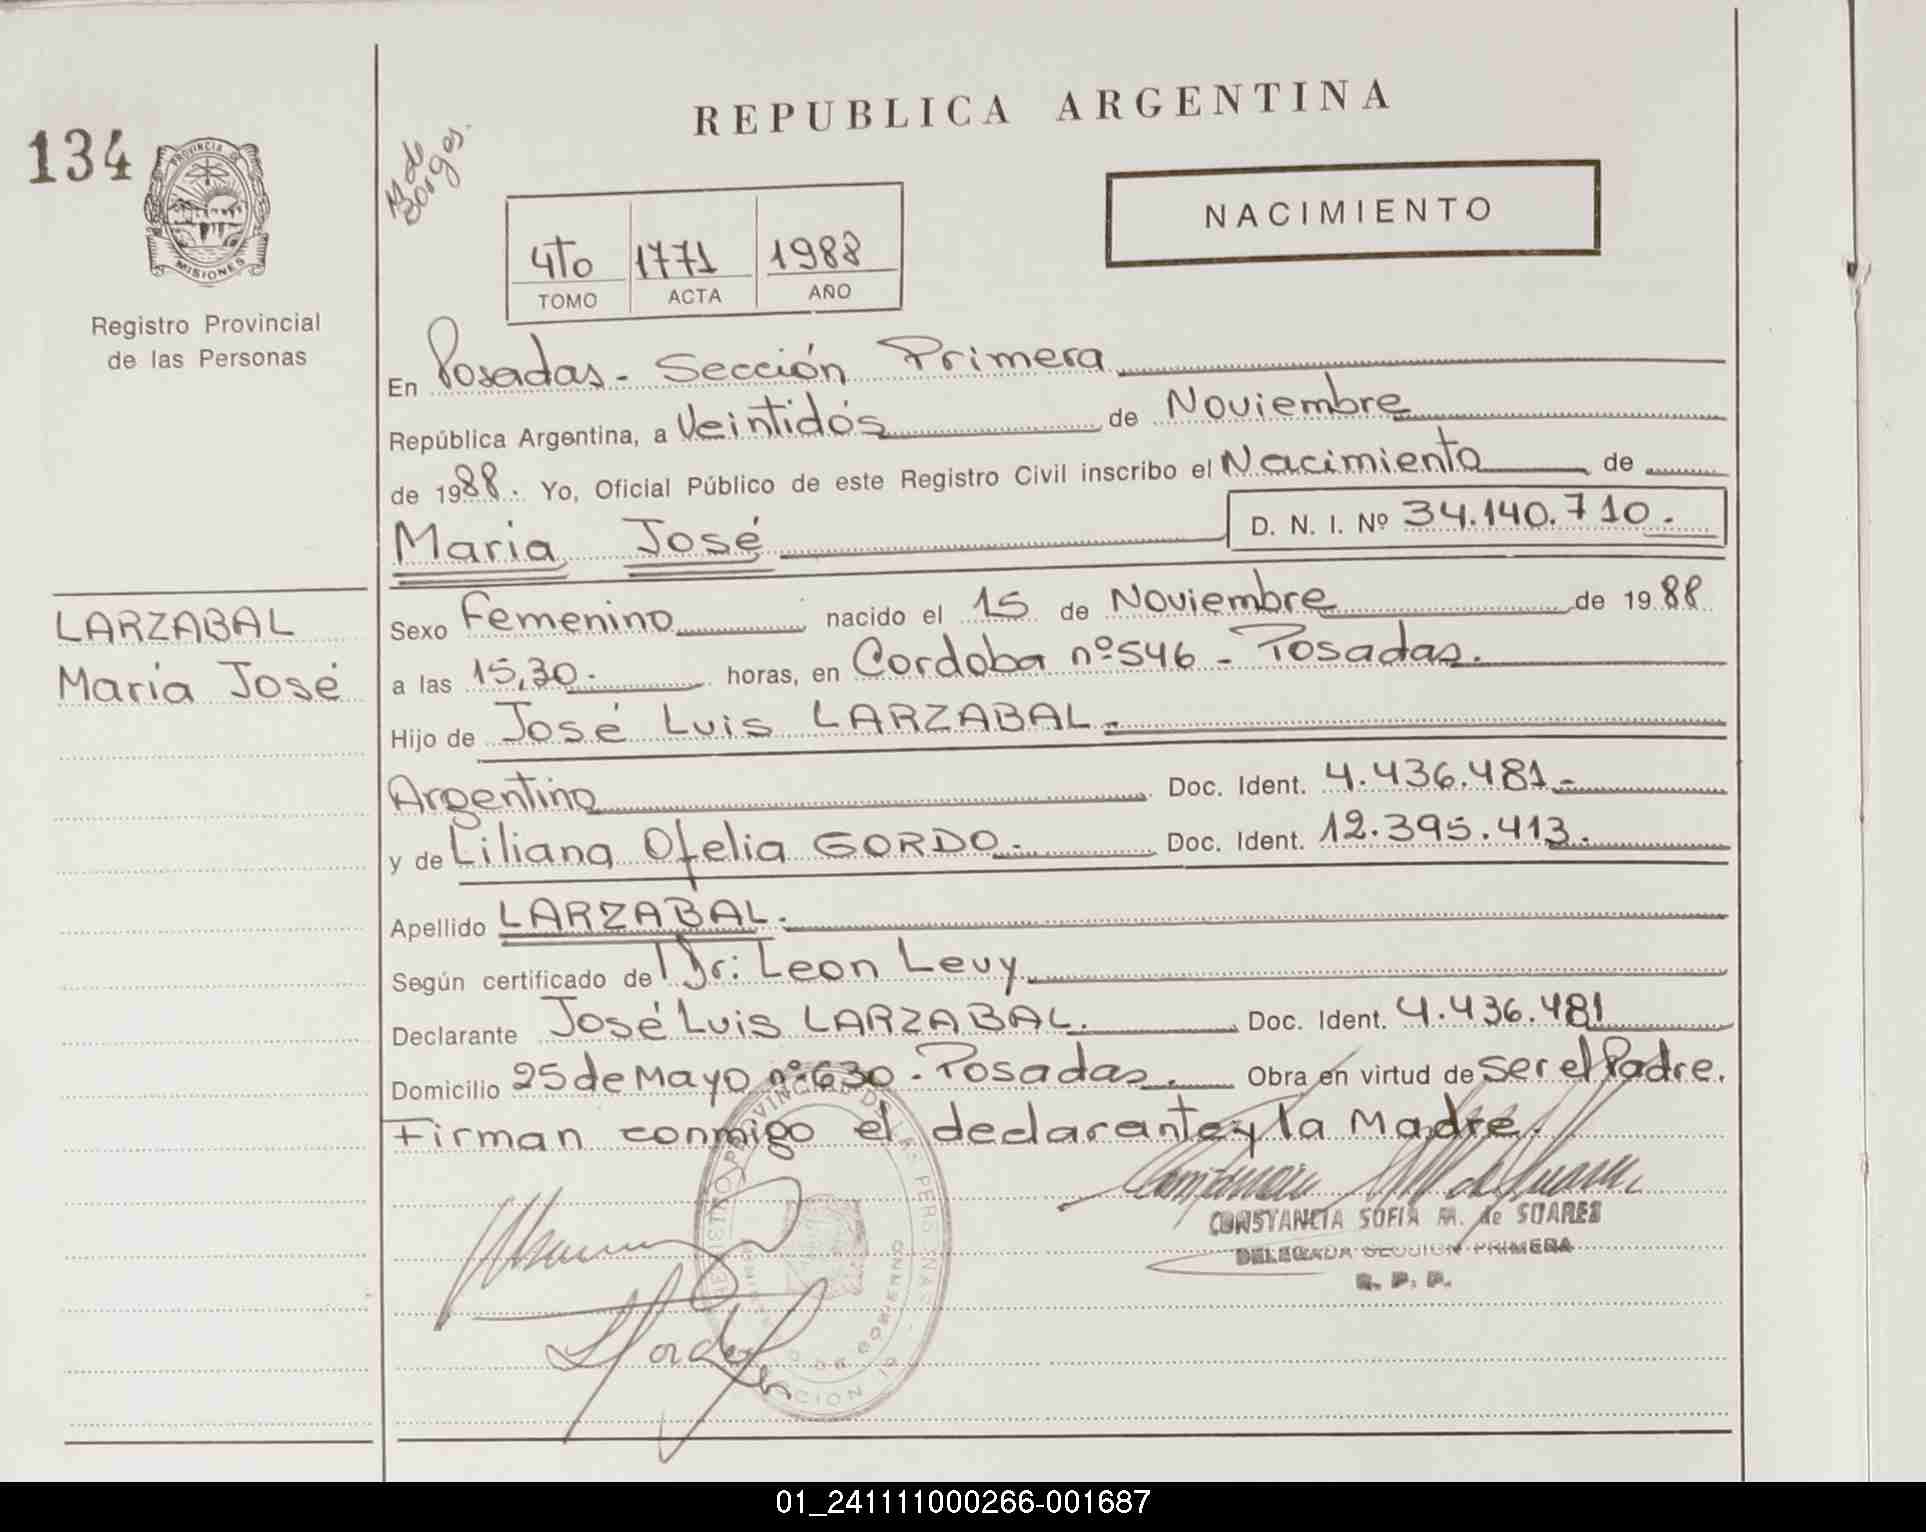 REPUBLICA ARGENTINA
134
PROVINCIA DE
MISIONES
Registro Provincial
de las Personas
M de
Borges.
4To 1771 1988
TOMO ACTA AÑO
NACIMIENTO
En Posadas - Sección Primera
República Argentina, a Veintidós de Noviembre
de 1988. Yo, Oficial Público de este Registro Civil inscribo el Nacimiento de
Maria José D. N. I. Nº 34.140.710.
LARZABAL
Maria José
Sexo Femenino nacido el 15 de Noviembre de 1988
a las 15,30. horas, en Cordoba nº546 - Posadas.
Hijo de José Luis LARZABAL.
Argentino Doc. Ident. 4.436.481.
y de Liliana Ofelia GORDO. Doc. Ident. 12.395.413.
Apellido LARZABAL.
Según certificado de Dr: Leon Levy
Declarante José Luis LARZABAL. Doc. Ident. 4.436.481
Domicilio 25 de Mayo nº630 - Posadas. Obra en virtud de ser el Padre.
Firman conmigo el declarante y la Madre.
CONSTANCIA SOFIA M. de SUARES
DELEGADA SECCION PRIMERA
R. P. P.
01_241111000266-001687